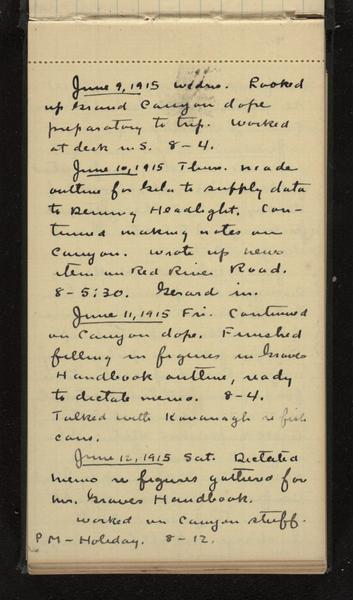 June 9, 1915 Wedns. Looked
up Grand Canyon dope
preparatory to trip. Worked
at desk in S. 8-4.
June 10, 1915 Thurs. Made
outline for Gila to supply data
to Deming Headlight. Con-
tinued making notes on
Canyon. Wrote up news
item on Red River Road.
8-5:30. Gerard in.
June 11, 1915 Fri. Continued
on Canyon dope. Finished
filling in figures in Graves
Handbook outline, ready
to dictate memo. 8-4.
Talked with Kavanagh re fish
cans.
June 12, 1915 Sat. Dictated
memo re figures gathered for
Mr. Graves Handbook.
Worked on Canyon stuff.
PM - Holiday. 8-12.